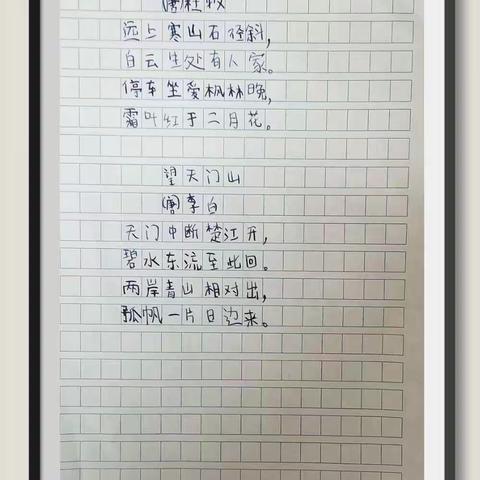 (唐)杜牧
远上寒山石径斜,
白云生处有人家。
停车坐爱枫林晚,
霜叶红于二月花。
望天门山
(唐)李白
天门中断楚江开,
碧水东流至此回。
两岸青山相对出,
孤帆一片日边来。